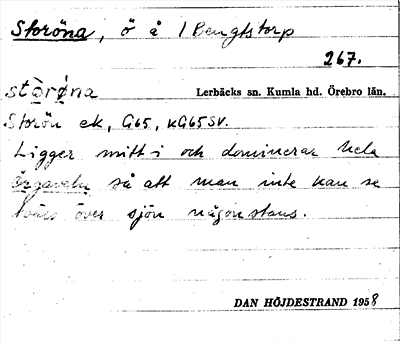 Storöna, ö å 1 Bengtstorp
267.
stòrǿna
Lerbäcks sn. Kumla hd. Örebro län.
Storön ek, G65, KG65SV.
Ligger mitt i och dominerar hela
så att man inte kan se
tvärs över sjön någonstans.
DAN HÖJDESTRAND 1958